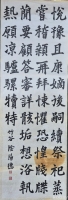 悅豫且康嫡後嗣續祭祀蒸
嘗稽顙再拜悚懼恐惶牋牒
簡要顧答審詳骸垢想浴執
熱願凉驢騾犢特